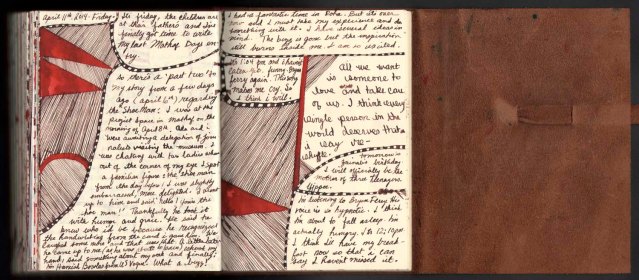 April 11th 2014. Friday. It's friday, the children are
at their fathers and I've
finally got time to write
my last Mathaf Days en-
try.
So there's a 'part two' to
my story from a few days
ago (april 6th) regarding
the Shoe Man: I was at the
project space in mathaf on the
morning of April 8th. Alia and i
were awaiting a delegation of jour-
nalists visiting the museum. I
was chatting with two ladies when
out of the corner of my eye I spot
a familiar figure: the shoe man
from the day before! I was slightly
embarrassed, more delighted. I went
up to him and said 'hello! You're the
shoe man!' Thankfully he took it
with humor and grace. He said he
knew who i'd be because he recognized
the handwriting from the card i gave him. We
laughed some more and that was that. A little later
he came up to me (as he was about to leave) shook my
hand, said something about my work and finally,
I'm Harold Vogue. What a buzz!
I had a fantastic time in Doha. But its over
now and I must take my experience and do
something with it. I have several ideas in
mind. The buzz is gone but the inspiration
still burns inside me. I am so excited.
It's 11.04 pm and i having
Calea Bryan
Ferry again. This song
makes me cry. So
I think i will.
All we want
is someone to
love and take care
of us. I think every
single person in the
world deserves that.
i say re-
tomorrow
fatima's birthday
I will officially be the
mother of three teenagers
Yoga.
I'm listening to Bryan Ferry. His
voice is so hypnotic. I think
i'm about to fall asleep. I'm
actually hungry. Its 12:10pm
I think i'll have my break-
fast now so that i can
say I haven't missed it.